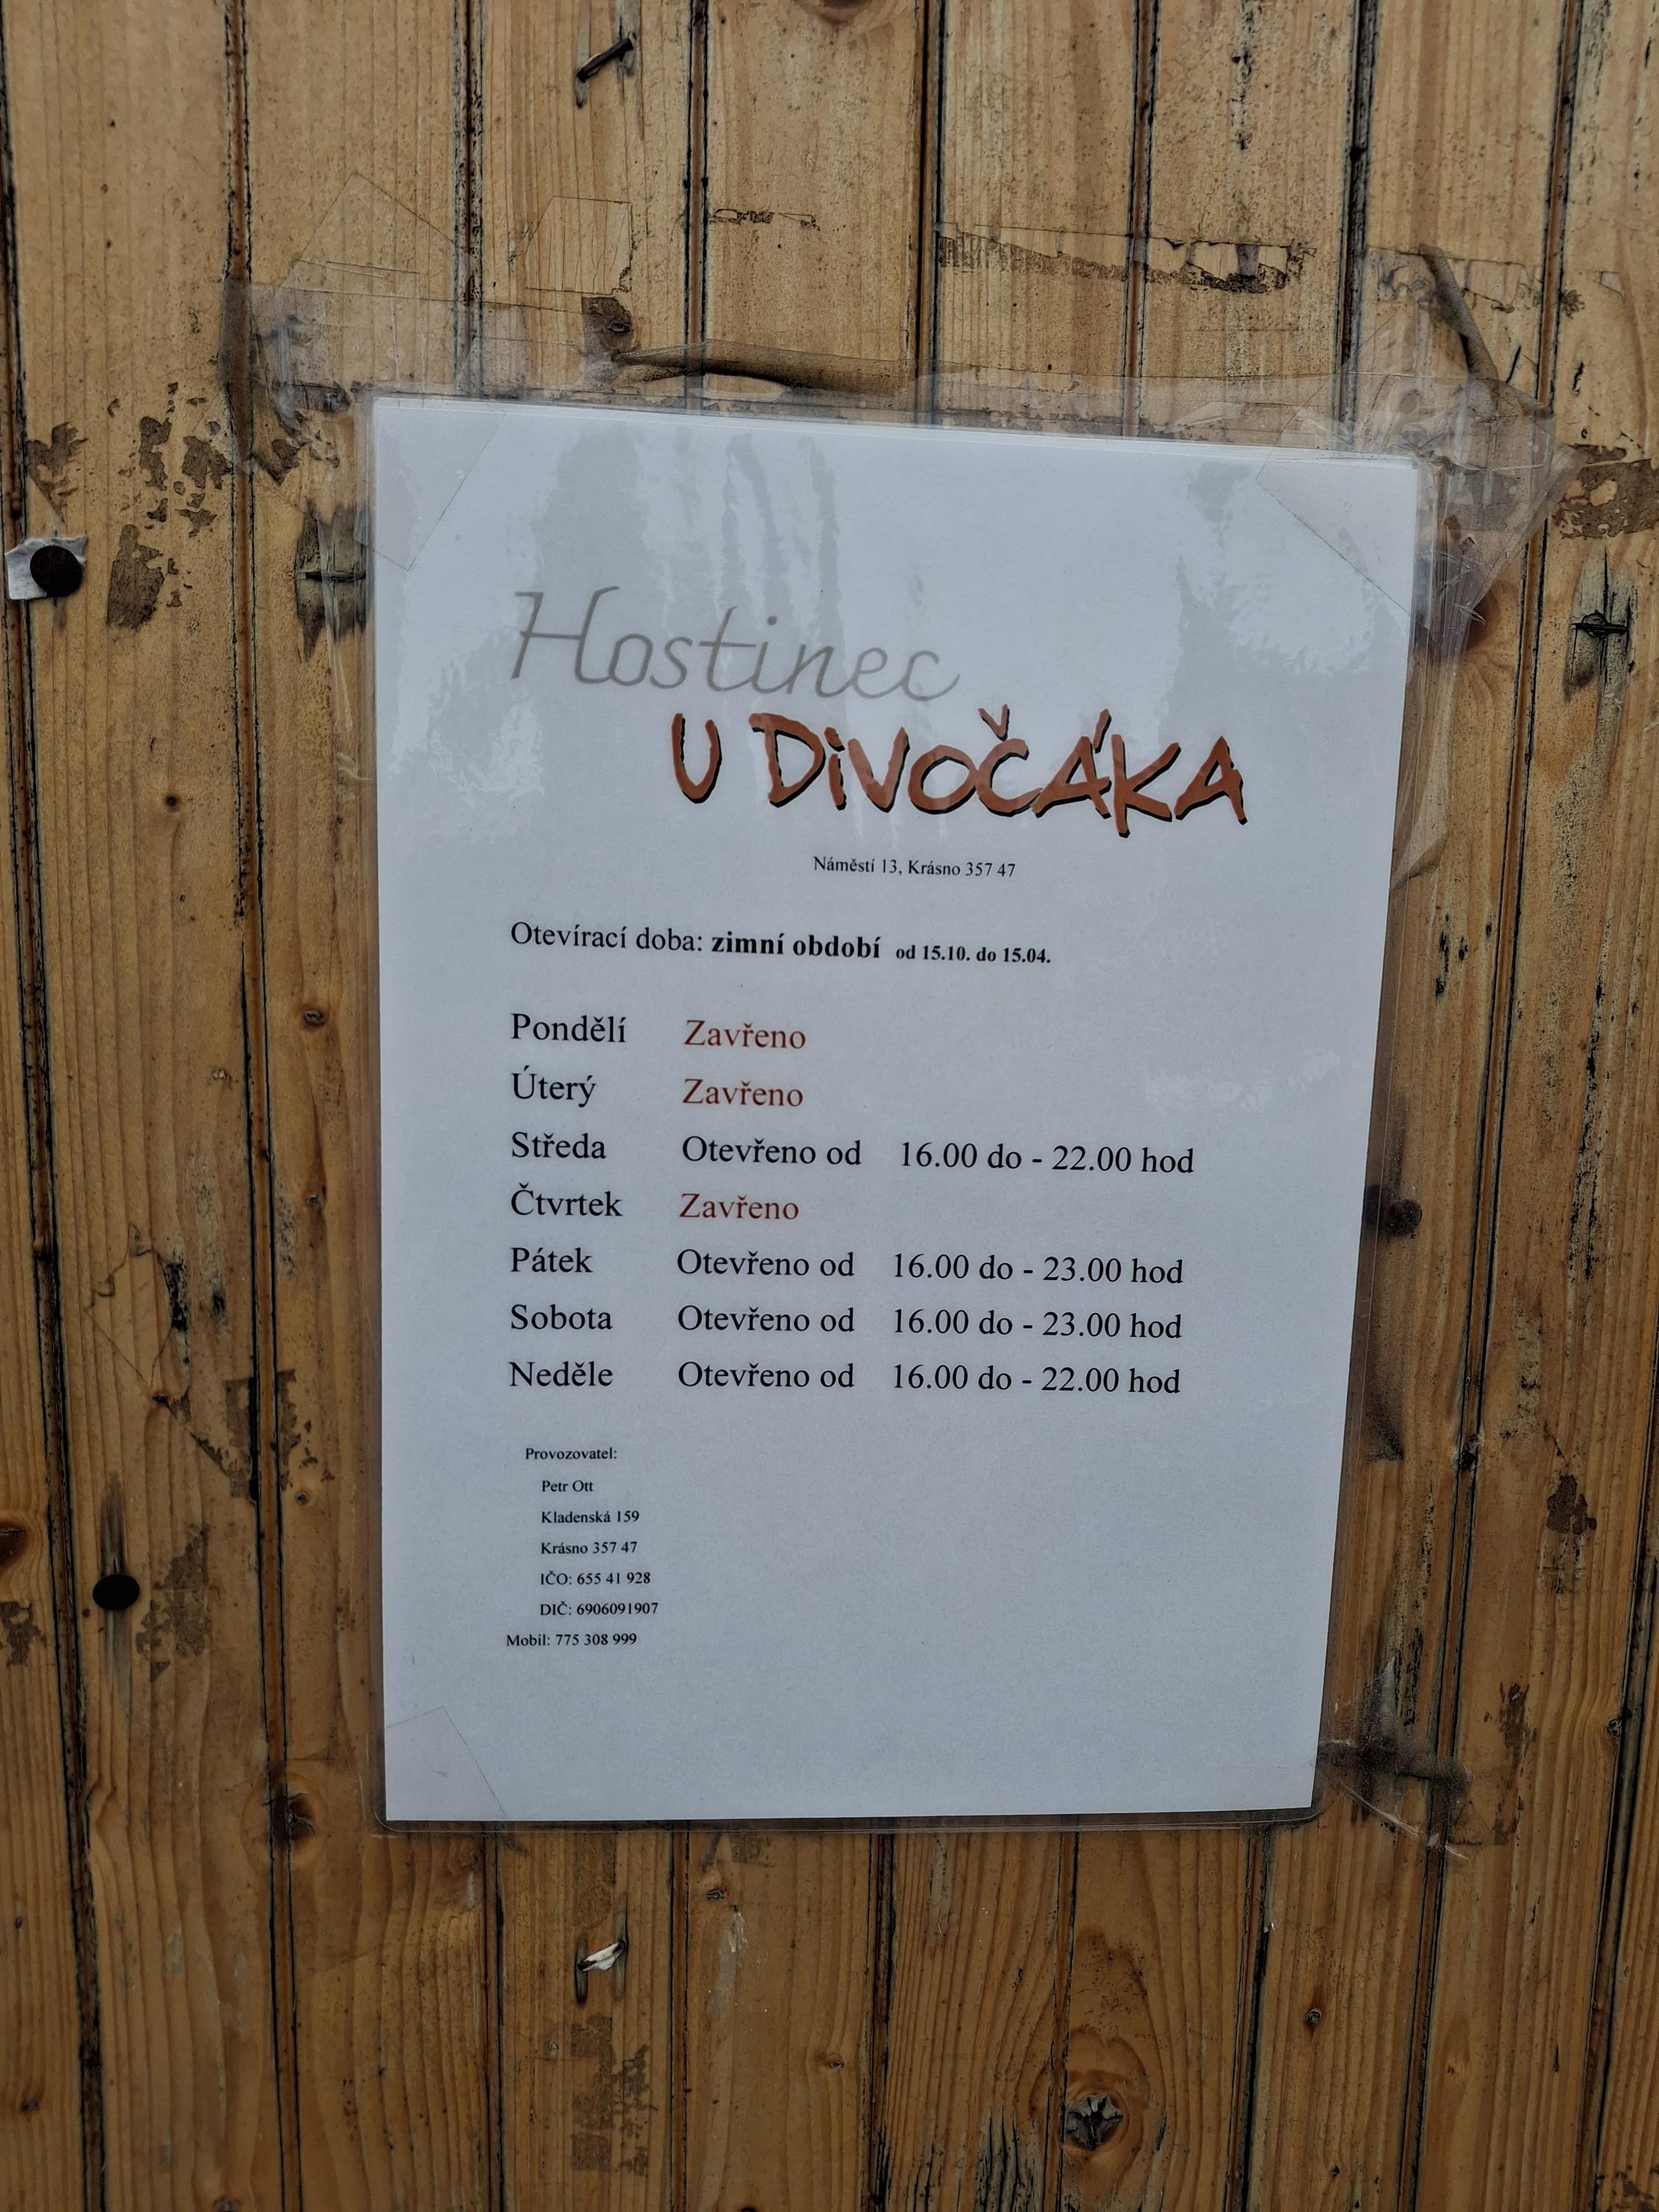 Hostinec
U DiVOČÁKA
Náměstí 13, Krásno 357 47
Otevírací doba: zimní období od 15.10. do 15.04.
Pondělí Zavřeno
Úterý Zavřeno
Středa Otevřeno od 16.00 do - 22.00 hod
Čtvrtek Zavřeno
Pátek Otevřeno od 16.00 do - 23.00 hod
Sobota Otevřeno od 16.00 do - 23.00 hod
Neděle Otevřeno od 16.00 do - 22.00 hod
Provozovatel:
Petr Ott
Kladenská 159
Krásno 357 47
IČO: 655 41 928
DIČ: 6906091907
Mobil: 775 308 999